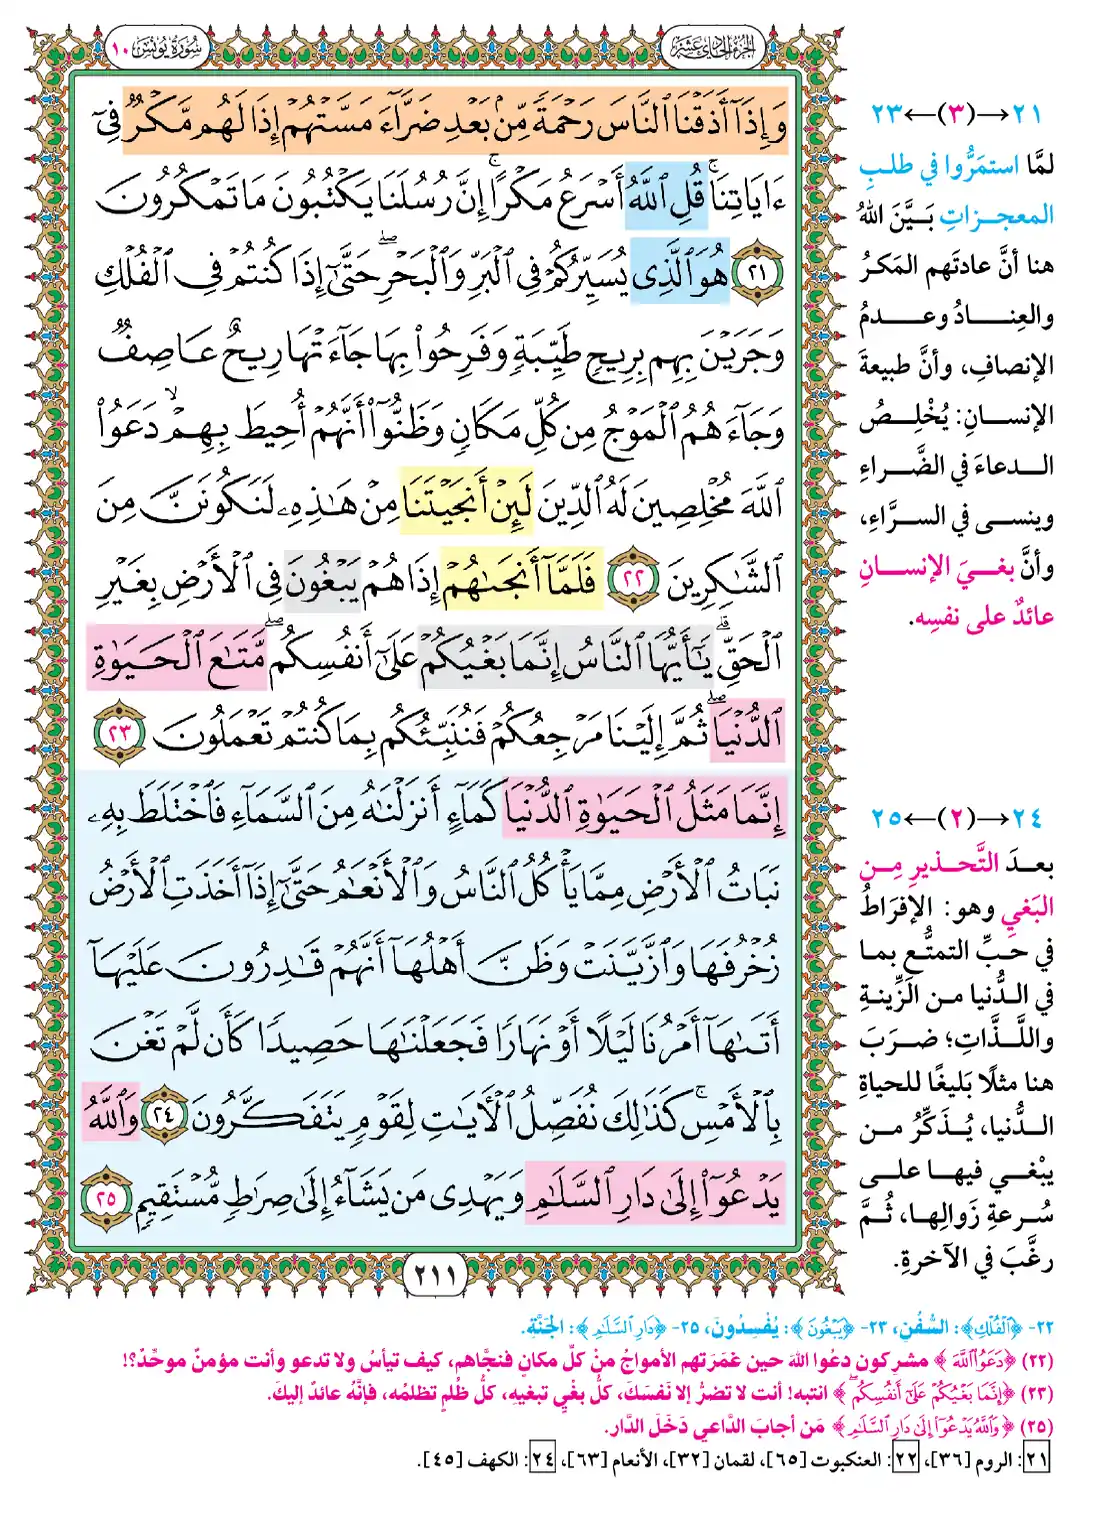 الجزء الحادي عشر
سورة يونس ١٠
وَإِذَآ أَذَقْنَا ٱلنَّاسَ رَحْمَةً مِّنۢ بَعْدِ ضَرَّآءَ مَسَّتْهُمْ إِذَا لَهُم مَّكْرٌ فِىٓ
ءَايَاتِنَا ۚ قُلِ ٱللَّهُ أَسْرَعُ مَكْرًا ۚ إِنَّ رُسُلَنَا يَكْتُبُونَ مَا تَمْكُرُونَ
٢١ هُوَ ٱلَّذِى يُسَيِّرُكُمْ فِى ٱلْبَرِّ وَٱلْبَحْرِ ۖ حَتَّىٰٓ إِذَا كُنتُمْ فِى ٱلْفُلْكِ
وَجَرَيْنَ بِهِم بِرِيحٍ طَيِّبَةٍ وَفَرِحُوا۟ بِهَا جَآءَتْهَا رِيحٌ عَاصِفٌ
وَجَآءَهُمُ ٱلْمَوْجُ مِن كُلِّ مَكَانٍ وَظَنُّوٓا۟ أَنَّهُمْ أُحِيطَ بِهِمْ ۙ دَعَوُا۟
ٱللَّهَ مُخْلِصِينَ لَهُ ٱلدِّينَ لَئِنْ أَنجَيْتَنَا مِنْ هَٰذِهِۦ لَنَكُونَنَّ مِنَ
ٱلشَّٰكِرِينَ ٢٢ فَلَمَّآ أَنجَىٰهُمْ إِذَا هُمْ يَبْغُونَ فِى ٱلْأَرْضِ بِغَيْرِ
ٱلْحَقِّ ۗ يَٰٓأَيُّهَا ٱلنَّاسُ إِنَّمَا بَغْيُكُمْ عَلَىٰٓ أَنفُسِكُم ۖ مَّتَٰعَ ٱلْحَيَوٰةِ
ٱلدُّنْيَا ۖ ثُمَّ إِلَيْنَا مَرْجِعُكُمْ فَنُنَبِّئُكُم بِمَا كُنتُمْ تَعْمَلُونَ ٢٣
إِنَّمَا مَثَلُ ٱلْحَيَوٰةِ ٱلدُّنْيَا كَمَآءٍ أَنزَلْنَٰهُ مِنَ ٱلسَّمَآءِ فَٱخْتَلَطَ بِهِۦ
نَبَاتُ ٱلْأَرْضِ مِمَّا يَأْكُلُ ٱلنَّاسُ وَٱلْأَنْعَٰمُ حَتَّىٰٓ إِذَآ أَخَذَتِ ٱلْأَرْضُ
زُخْرُفَهَا وَٱزَّيَّنَتْ وَظَنَّ أَهْلُهَآ أَنَّهُمْ قَٰدِرُونَ عَلَيْهَآ
أَتَىٰهَآ أَمْرُنَا لَيْلًا أَوْ نَهَارًا فَجَعَلْنَٰهَا حَصِيدًا كَأَن لَّمْ تَغْنَ
بِٱلْأَمْسِ ۚ كَذَٰلِكَ نُفَصِّلُ ٱلْأَيَٰتِ لِقَوْمٍ يَتَفَكَّرُونَ ٢٤ وَٱللَّهُ
يَدْعُوٓا۟ إِلَىٰ دَارِ ٱلسَّلَٰمِ وَيَهْدِى مَن يَشَآءُ إِلَىٰ صِرَٰطٍ مُّسْتَقِيمٍ ٢٥
٢١١
٢١→(٣)←٢٣
لمَّا استمَرُّوا في طلبِ
المعجزاتِ بَيَّنَ اللهُ
هنا أنَّ عادتَهم المَكرُ
والعِنادُ وعدمُ
الإنصافِ، وأنَّ طبيعةَ
الإنسانِ: يُخْلِصُ
الدعاءَ في الضَّراءِ
وينسى في السرَّاءِ،
وأنَّ بغيَ الإنسانِ
عائدٌ على نفسِه.
٢٤→(٢)←٢٥
بعدَ التَّحذيرِ مِن
البَغي وهو: الإفرَاطُ
في حبِّ التمتُّع بما
في الدُّنيا من الزِّينةِ
واللَّذَّاتِ؛ ضرَبَ
هنا مثلًا بَليغًا للحياةِ
الدُّنيا، يُذَكِّرُ من
يبْغي فيها على
سُرعةِ زَوالِها، ثُمَّ
رغَّبَ في الآخرةِ.
٢٢- ﴿ٱلْفُلْكِ﴾: السُّفُنِ، ٢٣- ﴿يَبْغُونَ﴾: يُفْسِدُونَ، ٢٥- ﴿دَارِ ٱلسَّلَٰمِ﴾: الجَنَّةِ.
(٢٢) ﴿دَعَوُا۟ ٱللَّهَ﴾ مشركون دعُوا اللهَ حين غمَرَتهم الأمواجُ منْ كلِّ مكانٍ فنجَّاهم، كيف تيأسُ ولا تدعو وأنت مؤمنٌ موحِّدٌ؟!
(٢٣) ﴿إِنَّمَا بَغْيُكُمْ عَلَىٰٓ أَنفُسِكُم﴾ انتبه! أنت لا تضرُّ إلا نَفسَكَ، كلُّ بغْيٍ تبغيهِ، كلُّ ظُلمٍ تظلمُه، فإنَّهُ عائدٌ إليكَ.
(٢٥) ﴿وَٱللَّهُ يَدْعُوٓا۟ إِلَىٰ دَارِ ٱلسَّلَٰمِ﴾ مَن أجابَ الدَّاعي دَخَلَ الدَّار.
٢١: الروم [٣٦]، ٢٢: العنكبوت [٦٥]، لقمان [٣٢]، الأنعام [٦٣]، ٢٤: الكهف [٤٥].